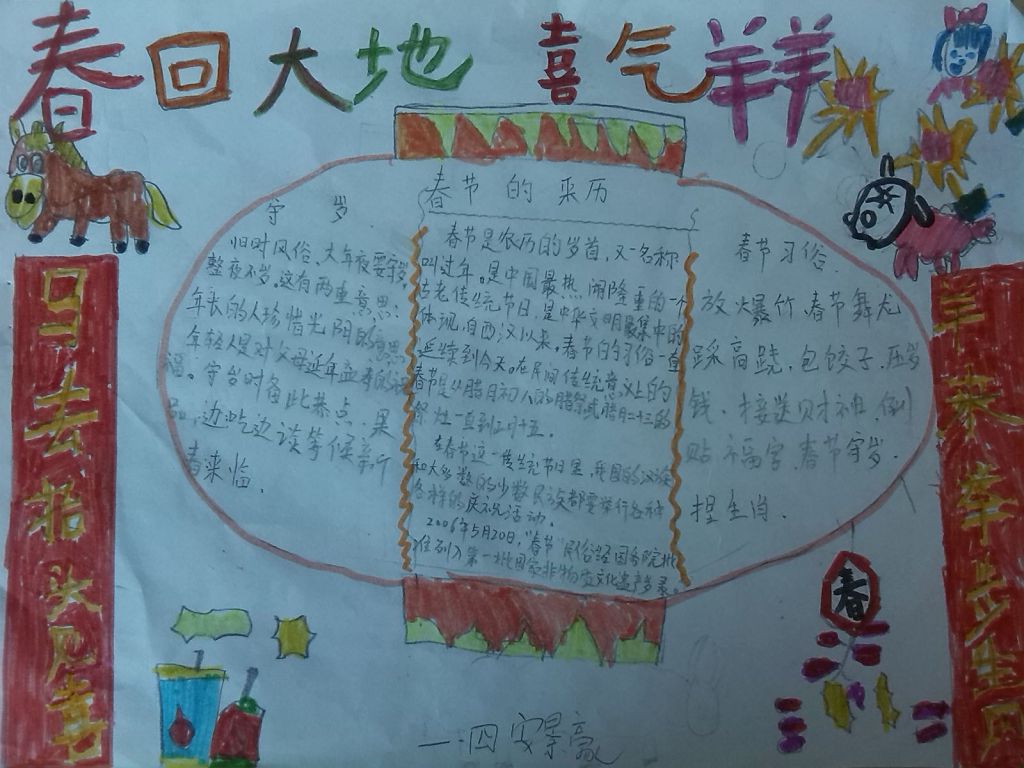 春回大地 喜气羊羊
马去抬头见喜
守岁
旧时风俗,大年夜要守岁,
整夜不岁。这有两重意思:
年长的人珍惜光阴的意思
年轻人是对父母延年益寿的祝
福。守台时备此恭点、果
品,边吃边谈等候新
春来临。
春节的来历
春节是农历的岁首,又一名称
叫过年。是中国最热闹隆重的一个
古老传统节日,是中华文明最集中的
体现,自西汉以来,春节的习俗一直
延续到今天。在民间传统意义上的
春节是从腊月初八的腊祭或腊月二十三的
祭灶一直到正月十五。
在春节这一传统节日里,我国的汉族
和大多数的少数民族都要举行各种
各样的庆祝活动。
2006年5月20日,"春节"民俗经国务院批
准列入第一批国家非物质文化遗产名录。
春节习俗
放火暴竹,春节舞龙
踩高跷,包饺子,压岁
钱,接送财神,倒
贴福字,春节守岁。
捏生肖.
羊来举步生风
春
一·四 安景豪